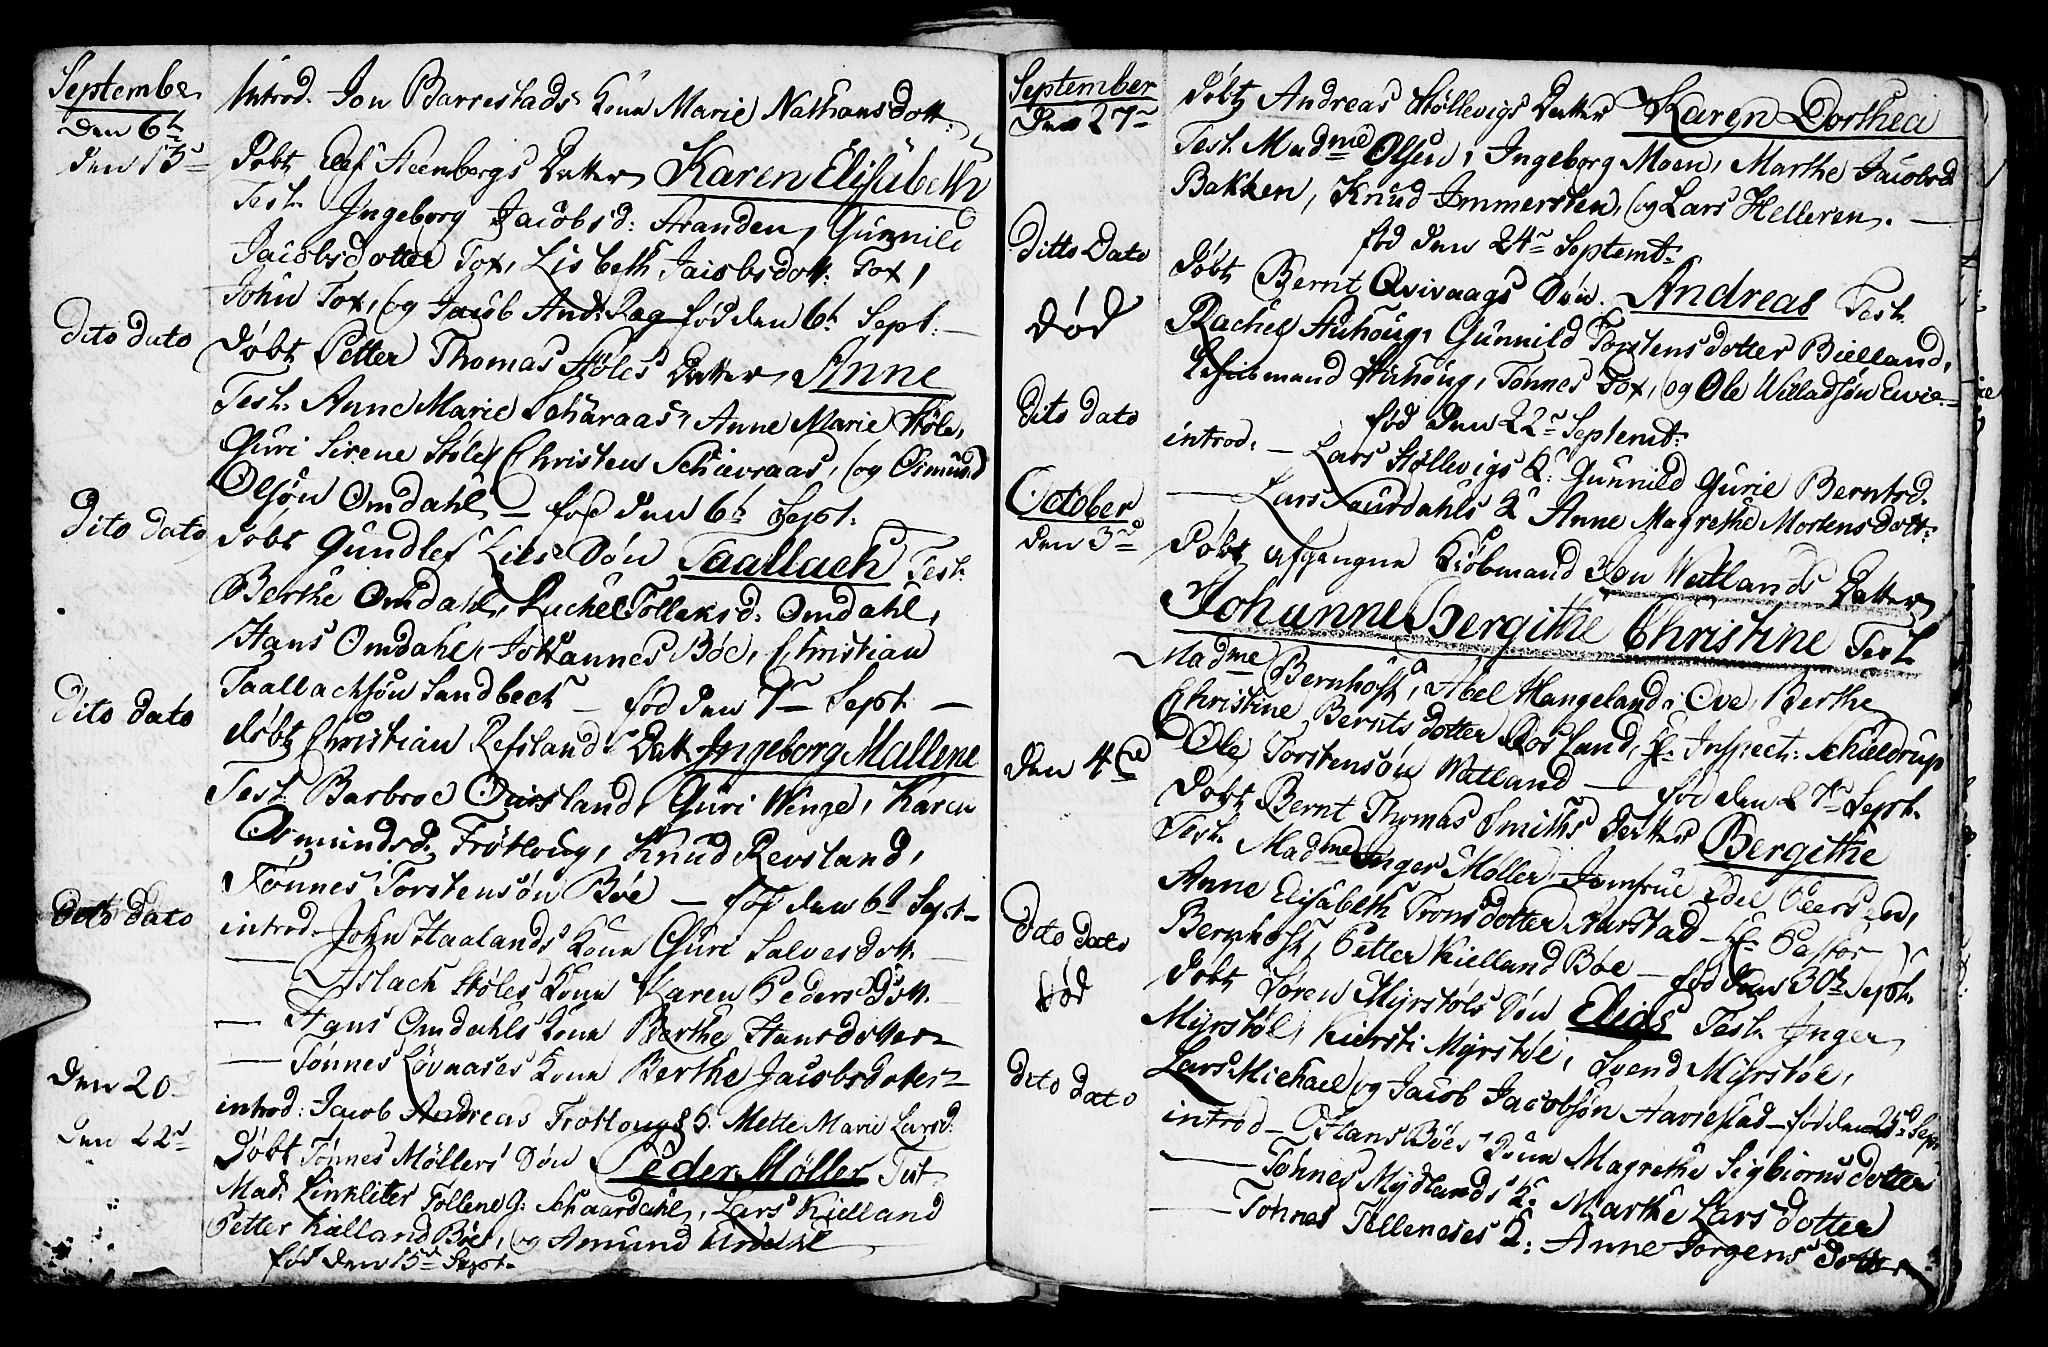 September
Den 6te
Introd. Jon Barrestads Kone Marie Nathansdott:
den 13de
Døbt Elef Steenbergs Datter Karen Elisabeth
Test. Ingeborg Jacobsd: Stranden, Gunnild
Jacobsdotter Tox, Lisbeth Jacobsdott: Tox,
John Tox, og Jacob And: Rag født den 6te Sept: —
Dito dato
Døbt Petter Thomas Støles Datter Anne
Test. Anne Marie Scharaas, Anne Marie Støle,
Guri Sirene Støle, Christen Schievraas, og Osmund
Olsøn Omdahl — fød den 6te Sept. —
Dito dato
Døbt Gundlef Lies Søn Taallach Test.
Berthe Omdahl, Rachel Tolleksd. Omdahl,
Hans Omdahl, Johannes Bóe, Christian
Taallachsøn Sandbech — fød den 7de Sept. —
Dito dato
døbt Christian Refslands Datt. Ingeborg Mallene
Test. Barbroe Ouesland, Guri Wenge, Karen
Osmundsd. Frøtloug, Knud Revsland,
Tønnes Torstensøn Bóe — fød den 6te Sept —
Dito dato
introd. John Haalands Kone Guri Salvesdott. —
— Aslach Støles Kone Karen Pedersdott.
— Hans Omdahls Kone Berthe Hansdotter
— Tønnes Løvaases Kone Berthe Jacobsdotter
Den 20de
introd: Jacob Andreas Frøtlougs K. Mette Marie Larsd:
Den 22de
Døbt Tønnes Møllers Søn Peder Møller Test.
Mad. Linkliter Tollene G: Schaardahl, Lars Kielland
Petter Kielland Bóe, og Amund Urdahl
fød den 15de Sept.
September
Den 27de
Døbt Andreas Støllevigs Datter Karen Dorthea
Test. Madme Olsen, Ingeborg Moen, Marthe Jacobsd.
Bakken, Knud Immersten, og Lars Helleren. —
fød den 24de Septemt:
Ditto Dato
Døbt Bernt Qvivaags Søn. Andreas Test.
død
Rachel Stuhoug, Gunnild Torstensdotter Bielland,
Stuhoug, Tønnes Tox, og Ole Willadsøn Evie —
fød den 22de Septemt:
Dito dato
introd. — Lars Støllevigs K: Gunnild Gurie Berntsd.
— Lars Laurdahls K Anne Magrethe Mortensdott:
October
den 3de
Døbt afgangne Kiøbmand Jon Watlands Datter
Johanne Bergithe Christine Test.
Madme Bernhoft, Abel Hangeland, Ove, Berthe
Christine Berntsdotter Aosland, H. Inspect: Schieldrup
Ole Torstensøn Watland — fød den 27de Sept.
Den 4de
Døbt Bernt Thomas Smiths Datter Bergithe
Test. Madme Inger Møller Jomfrue Edel Olersend,
Anne Elisabeth Tronsdotter Aarstad — H. Pastor
Bernhoft, Petter Kielland Bóe — fød den 30te Sept.
Dito dato
død
Døbt Søren Myrstøls Søn Elias Test. Inger
Myrstøl, Kiersti Myrstøl, Svend Myrstøl,
Lars Michael og Jacob Jacobsøn Aariestad — fød den 25de Sept
Dito dato
introd — Hans Bóes Kone Magrethe Sigbiornsdotter
— Tønnes Mydlands K. Marthe Larsdotter
— Tønnes Telleneses K: Anne Jorgensdotter